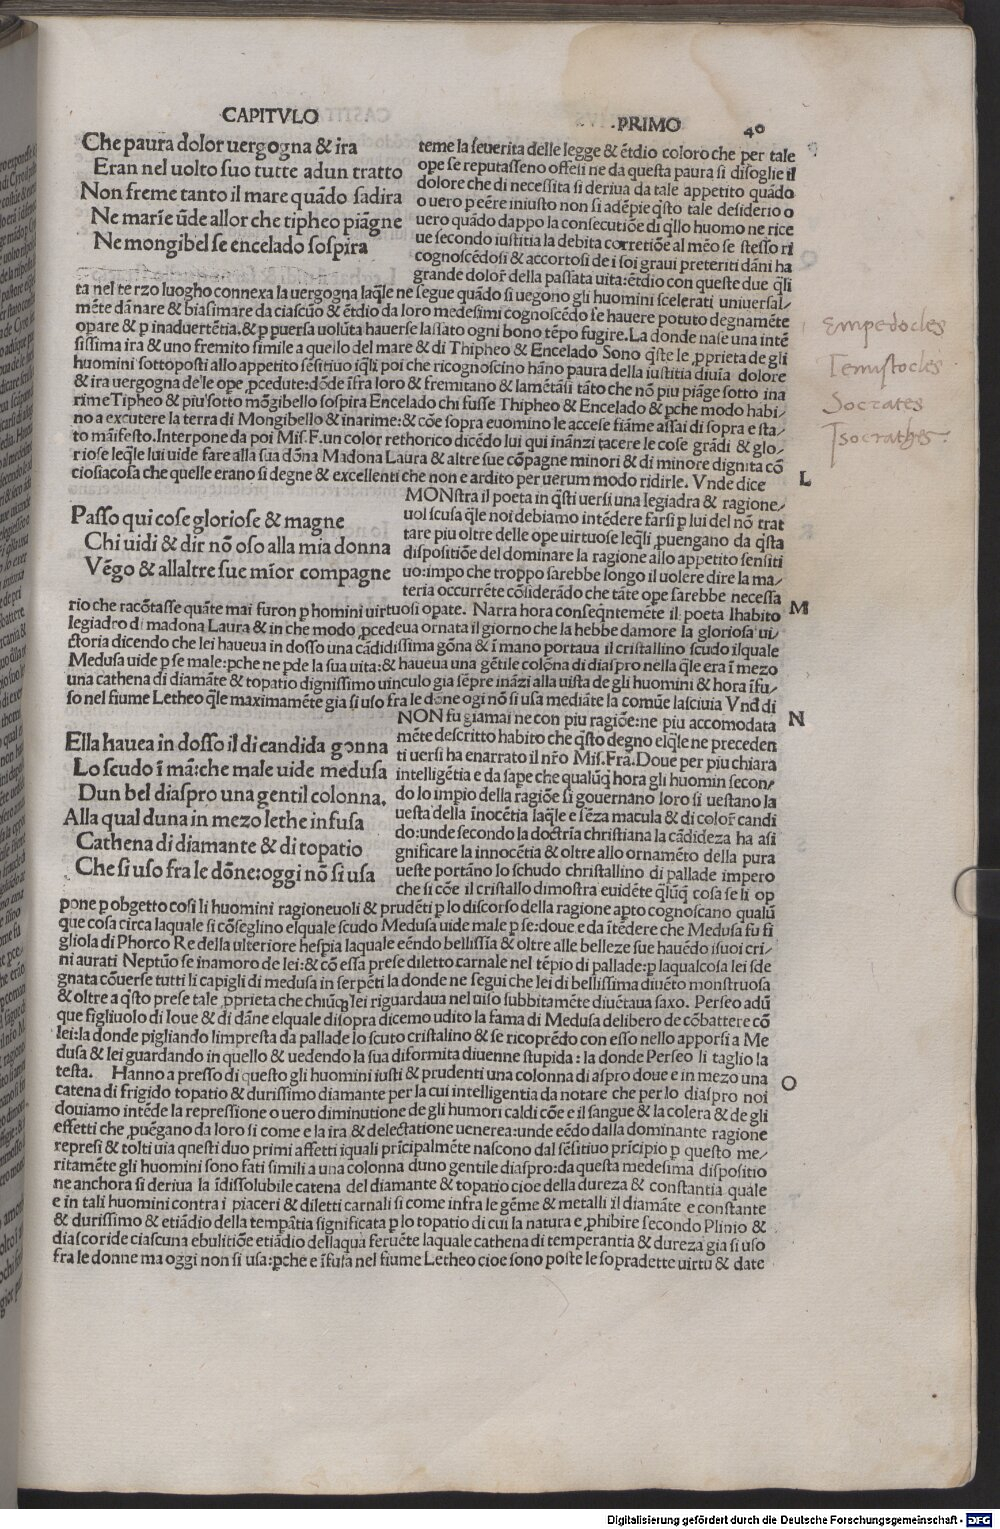 CAPITVLO
PRIMO
40
Che paura dolor uergogna & ira
Eran nel uolto suo tutte adun tratto
Non freme tanto il mare quādo sadira
Ne marīe ūde allor che tipheo piāgne
Ne mongibel se encelado sospira
teme la seuerita delle legge & ētdio coloro che per tale
ope se reputasseno offesi ne da questa paura si disoglie il
dolore che di necessita si deriua da tale appetito quādo
o uero p eēre iniusto non si adēpie q̄sto tale desiderio o
uero quādo dappo la consecutiōe di q̄llo huomo ne rice
ue secondo iustitia la debita corretiōe al mēo se stesso ri
cognoscēdosi & accortosi de i soi graui preteriti dāni ha
grande dolor̄ della passata uita: ētdio con queste due q̄li
ta nel terzo luogho connexa la uergogna laq̄le ne segue quādo si uegono gli huomini scelerati uniuersal/
mēte dānare & biasimare da ciascūo & ētdio da loro medesimi cognoscēdo se hauere potuto degnamēte
opare & p inaduertētia. & p puersa uolūta hauerse lassato ogni bono tēpo fugire. La donde nase una intē
sissima ira & uno fremito simile a quello del mare & di Thipheo & Encelado Sono q̄ste le pprieta de gli
huomini sottoposti allo appetito sēsitiuo iq̄li poi che ricognoscino hāno paura della iustitia diuīa dolore
& ira uergogna de le ope pcedute: dōde īfra loro & fremitano & lamētāsi tāto che nō piu piāge sotto ina
rime Tipheo & piu sotto mōgibello sospira Encelado chi fusse Thipheo & Encelado & pche modo habi/
no a excutere la terra di Mongibello & inarime: & cōe sopra euomino le accese fiāme assai di sopra e sta/
to māifesto. Interpone da poi Mis. F. un color rethorico dicēdo lui qui inānzi tacere le cose grādi & glo/
riose leq̄le lui uide fare alla sua dōna Madona Laura & altre sue cōpagne minori & di minore dignita cō
ciosiacosa che quelle erano si degne & excellenti che non e ardito per uerum modo ridirle. Vnde dice
L
Passo qui cose gloriose & magne
Chi uidi & dir nō oso alla mia donna
Vēgo & allaltre sue mīor compagne
MONstra il poeta in q̄sti uersi una legiadra & ragione/
uol scusa q̄le noi debiamo intēdere farsi p lui del nō trat
tare piu oltre delle ope uirtuose leq̄li puengano da q̄sta
dispositiōe del dominare la ragione allo appetito sensiti
uo: impo che troppo sarebbe longo il uolere dire la ma/
teria occurrēte cōsiderādo che tāte ope sarebbe necessa
rio che racōtasse quāte mai furon p homini uirtuosi opate. Narra hora conseq̄ntemēte il poeta lhabito
M
legiadro di madona Laura & in che modo pcedeua ornata il giorno che la hebbe damore la gloriosa ui/
ctoria dicendo che lei haueua in dosso una cādidissima gōna & ī mano portaua il cristallino scudo ilquale
Medusa uide p se male: pche ne pde la sua uita: & haueua una gētile colōna di diaspro nella q̄le era ī mezo
una cathena di diamāte & topatio dignissimo uinculo gia sēpre ināzi alla uista de gli huomini & hora īfu/
so nel fiume Letheo q̄le maximamēte gia si uso fra le dōne ogi nō si usa mediāte la comūe lasciuia Vnd di
N
Ella hauea in dosso il di candida gonna
Lo scudo ī mā: che male uide medusa
Dun bel diaspro una gentil colonna.
Alla qual duna in mezo lethe infusa
Cathena di diamante & di topatio
Che si uso fra le dōne: oggi nō si usa
NON fu giamai ne con piu ragiōe: ne piu accomodata
mēte descritto habito che q̄sto degno elq̄le ne preceden
ti uersi ha enarrato il nr̄o Mis. Frā. Doue per piu chiara
intelligētia e da sape che qualūq̄ hora gli huomin secon/
do lo impio della ragiōe si gouernano loro si uestano la
uesta della īnocētia laq̄le e sēza macula & di color̄ candi
do: unde secondo la doctrīa christiana la cādideza ha asi
gnificare la innocētia & oltre allo ornamēto della pura
ueste portāno lo schudo christallino di pallade impero
che si cōe il cristallo dimostra euidēte q̄lūq̄ cosa se li op
pone p obgetto cosi li huomini ragioneuoli & prudēti p lo discorso della ragione apto cognoscano qualū
que cosa circa laquale si cōseglino elquale scudo Medusa uide male p se: doue e da ītēdere che Medusa fu fi
gliola di Phorco Re della ulteriore hespīa laquale eēndo bellissīa & oltre alle belleze sue hauēdo i suoi cri/
ni aurati Neptūo se inamoro de lei: & cō essa prese diletto carnale nel tēpio di pallade: p laqualcosa lei sde
gnata cōuerse tutti li capigli di medusa in serpēti la donde ne segui che lei di bellissima diuēto monstruosa
& oltre a q̄sto prese tale pprieta che chiūq̄ lei riguardaua nel uiso subbitamēte diuētaua saxo. Perseo adū
que figliuolo di Ioue & di dāne elquale disopra dicemo udito la fama di Medusa delibero de cōbattere cō
lei: la donde pigliando limpresta da pallade lo scuto cristalino & se ricoprēdo con esso nello apporsi a Me
dusa & lei guardando in quello & uedendo la sua diformita diuenne stupida: la donde Perseo li taglio la
testa. Hanno a presso di questo gli huomini iusti & prudenti una colonna di aspro doue e in mezo una
O
catena di frigido topatio & durissimo diamante per la cui intelligentia da notare che per lo diaspro noi
douiamo intēde la repressione o uero diminutione de gli humori caldi cōe e il sangue & la colera & de gli
effetti che puēgano da loro si come e la ira & delectatione uenerea: unde eēdo dalla dominante ragione
represi & tolti uia questi duo primi affetti iquali prīcipalmēte nascono dal sēsitiuo prīcipio p questo me/
ritamēte gli huomini sono fati simili a una colonna duno gentile diaspro: da questa medesima dispositio
ne anchora si deriua la īdissolubile catena del diamante & topatio cioe della dureza & constantia quale
e in tali huomini contra i piaceri & diletti carnali si come infra le gēme & metalli il diamāte e constante
& durissimo & etiādio della tempātia significata p lo topatio di cui la natura e phibire secondo Plinio &
diascoride ciascuna ebulitiōe etiādio dellaqua feruēte laquale cathena di temperantia & dureza gia si uso
fra le donne ma oggi non si usa: pche e īfusa nel fiume Letheo cioe sono poste le sopradette uirtu & date
Empedocles
Temistocles
Socrates
Isocrathes
Digitalisierung gefördert durch die Deutsche Forschungsgemeinschaft - DFG